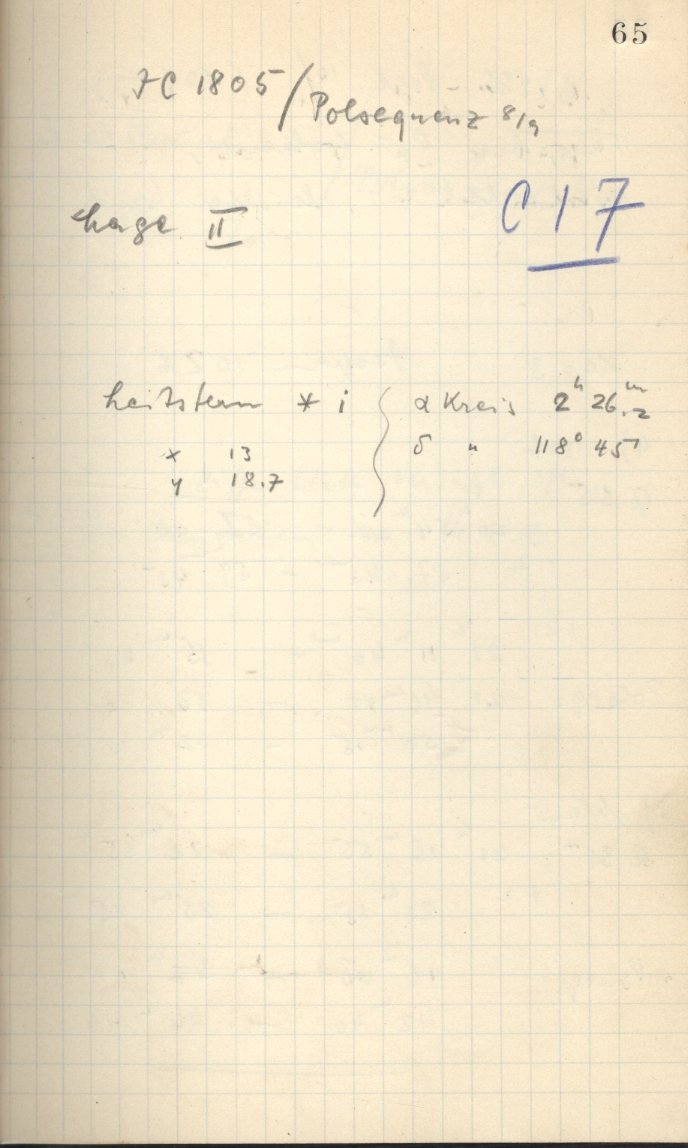 65
JC 1805 / Polsequenz 8/9
Lage II
C 17
Leitstern * i { α Kreis 2h 26.m2
x 13 δ " 118° 45'
y 18.7